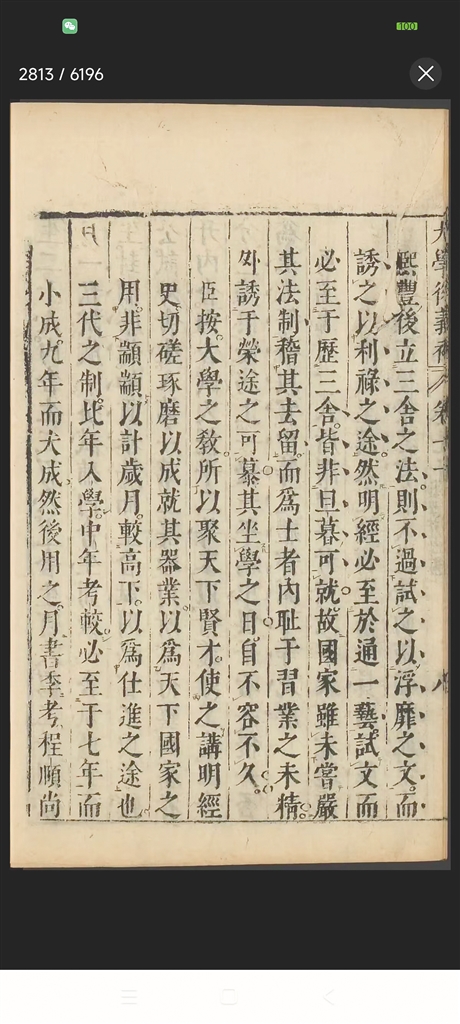 100
2813 / 6196
熙豐後立三舍之法則不過試之以浮靡之文而
誘之以利祿之途然明經必至於通一藝試文而
必至于歷三舍皆非旦暮可就故國家雖未嘗嚴
其法制稽其去留而爲士者內耻于習業之未精
外誘于榮途之可慕其坐學之日自不容不久
臣按大學之教所以聚天下賢才使之講明經
史切磋琢磨以成就其器業以爲天下國家之
用非顓顓以計歲月較高下以爲仕進之途也
三代之制比年入學中年考較必至于七年而
小成九年而大成然後用之月書季考程頤尚